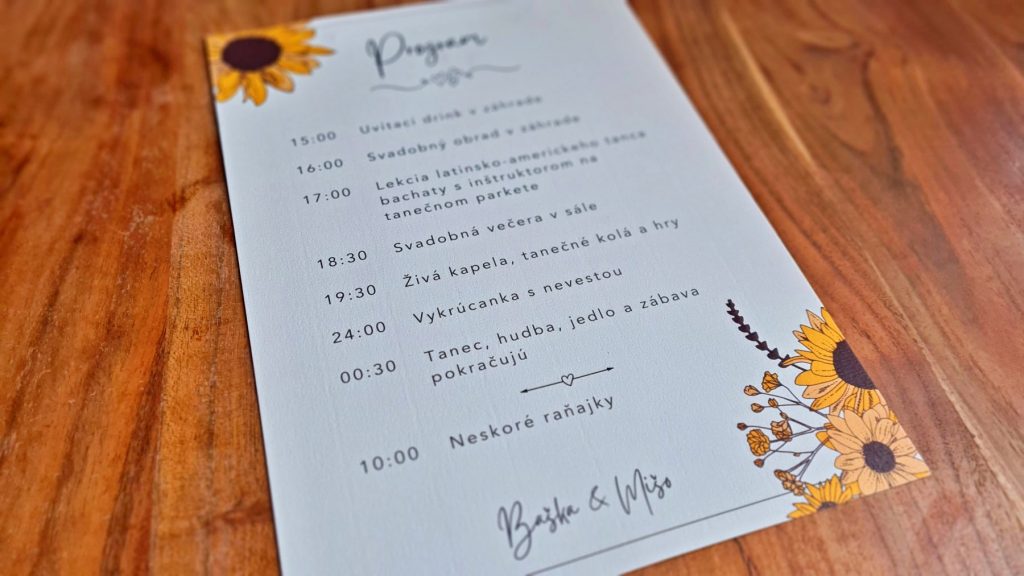 Program
15:00 Uvítací drink v záhrade
16:00 Svadobný obrad v záhrade
17:00 Lekcia latinsko-amerického tanca
bachaty s inštruktorom na
tanečnom parkete
18:30 Svadobná večera v sále
19:30 Živá kapela, tanečné kolá a hry
24:00 Vykrúcanka s nevestou
00:30 Tanec, hudba, jedlo a zábava
pokračujú
10:00 Neskoré raňajky
Baška & Mišo